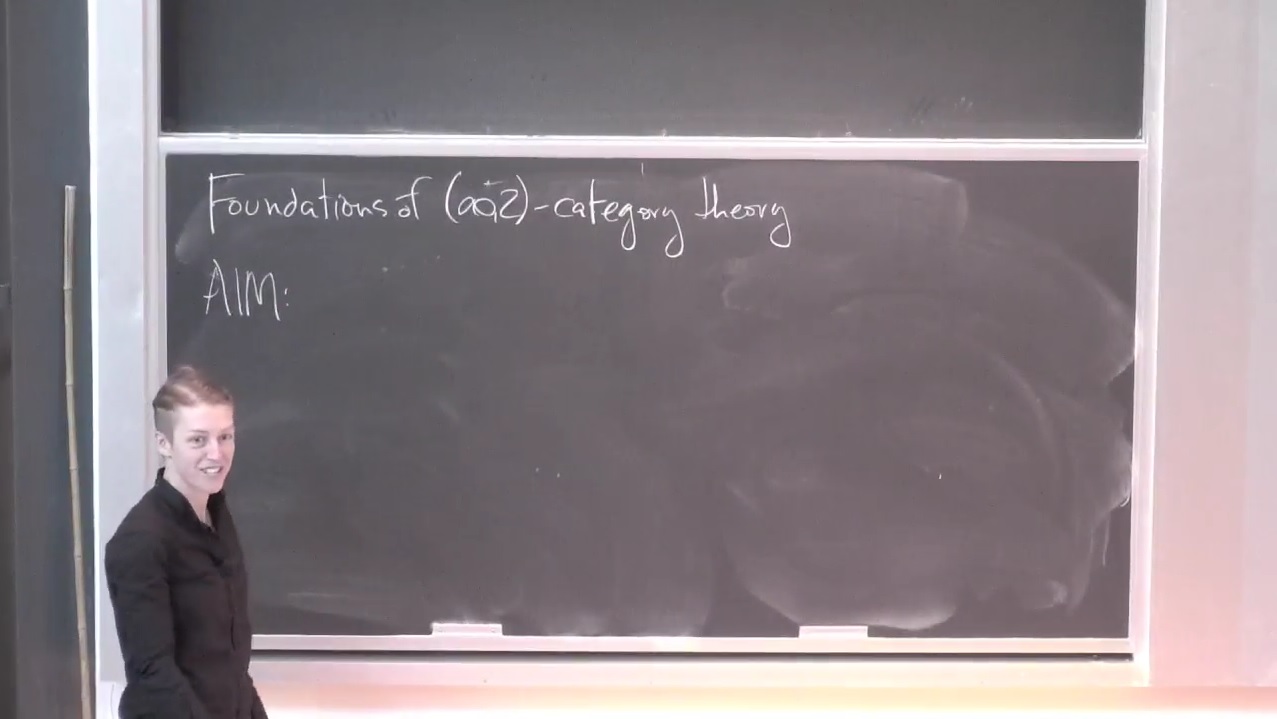 Foundations of (∞,2)-category theory
AIM: